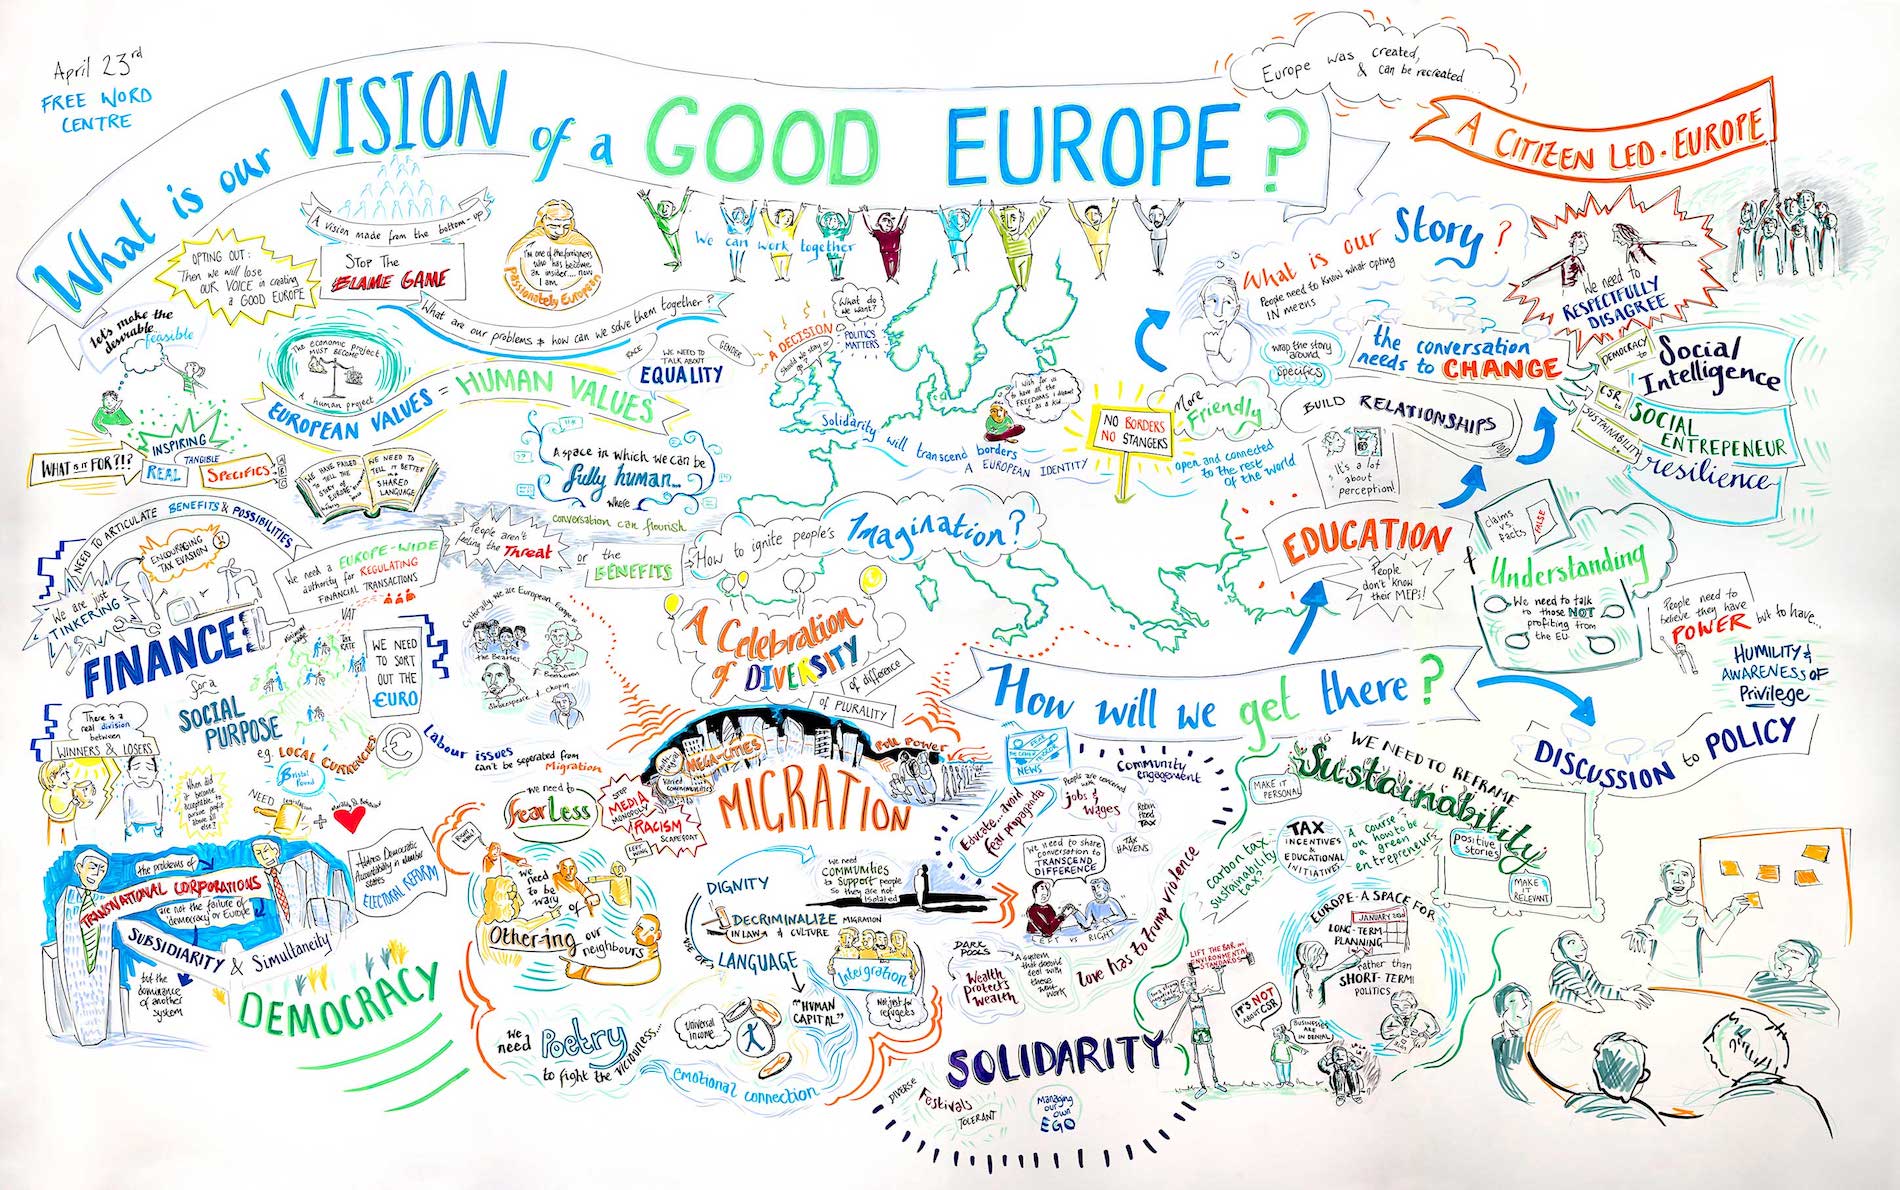 April 23rd
FREE WORD
CENTRE
What is our VISION of a GOOD EUROPE?
Europe was created,
& can be recreated
A CITIZEN LED · EUROPE
A vision made from the bottom-up
OPTING OUT:
Then we will lose
OUR VOICE in creating
a GOOD EUROPE
STOP THE
BLAME GAME
I'm one of the foreigners
who has become
an insider.... now
I am
passionately European
We can work together
What are our problems & how can we solve them together?
Let's make the
desirable...
feasible
The economic project
MUST BECOME
A human project
EUROPEAN VALUES = HUMAN VALUES
RACE
GENDER
WE NEED TO
TALK ABOUT
EQUALITY
A DECISION
Should we stay or
go?
What do
we want?
POLITICS
MATTERS
WHAT IS IT FOR?!?
INSPIRING
TANGIBLE
REAL
SPECIFICS
A
B
C
WE HAVE FAILED
TO TELL THE
STORY OF
EUROPE
WE NEED TO
TELL IT BETTER
IN A
SHARED
LANGUAGE
A space in which we can be
fully human...
where
conversation can flourish
Solidarity will transcend borders
A EUROPEAN IDENTITY
I wish for us
to have all the
FREEDOMS I dreamt
of as a kid...
NO BORDERS
NO STANGERS
More
Friendly
open and connected
to the rest
of the world
What is our Story?
People need to know what opting
IN means
wrap the story
around
specifics
the conversation
needs to CHANGE
We need to
RESPECTFULLY
DISAGREE
DEMOCRACY
to
Social
Intelligence
CSR
to
SOCIAL
ENTREPENEUR
SUSTAINABILITY
to
resilience
BUILD RELATIONSHIPS
It's a lot
about
perception!
EDUCATION
&
Understanding
People
don't know
their MEPs!
Claims
vs.
Facts
FALSE
We need to talk
to those NOT
profiting from
the EU
People need to
believe they have
POWER but to have...
HUMILITY &
AWARENESS OF
Privilege
NEED TO ARTICULATE BENEFITS & POSSIBILITIES
ENCOURAGING
TAX EVASION
We are just
TINKERING
FINANCE
for a
SOCIAL
PURPOSE
e.g. LOCAL CURRENCIES
Bristol
Pound
We need a EUROPE-WIDE
authority for REGULATING
FINANCIAL TRANSACTIONS
VAT
minimum
wage
TAX
RATE
WE NEED
TO SORT
OUT THE
€URO
€
People aren't
feeling the Threat
or
the
BENEFITS
How to ignite people's Imagination?
Culturally, we are European
the Beatles
Beethoven
Shakespeare
Chopin
A Celebration
of DIVERSITY
of difference
of PLURALITY
Labour issues
can't be seperated from
Migration
There is a
real division
between
WINNERS & LOSERS
When did
it become
acceptable to
pursue profit
above all
else?
NEED
legislation
+
We need to
fearLess
STOP
MEDIA
MONOPOLY
RACISM
SCAPEGOAT
MEGA-CITIES
varied
communities
Pull Power
MIGRATION
How will we get there?
DISCUSSION to POLICY
NEWS
Educate... avoid
fear propaganda
People are concerned
with
jobs &
wages
Community
engagement
Robin
Hood
TAX
TAX
HAVENS
We need to share
conversation to
TRANSCEND
DIFFERENCE
LEFT vs RIGHT
WE NEED TO REFRAME
Sustainability
MAKE IT
PERSONAL
TAX
INCENTIVES
&
EDUCATIONAL
INITIATIVES
A course
on how to be
a green
entrepreneur
positive
stories
MAKE
IT
RELEVANT
carbon tax
sustainability
tax?
love has to trump violence
the problems of
TRANSNATIONAL CORPORATIONS
are not the failure of
'democracy' or Europe
SUBSIDIARITY & Simultaneity
but the
dominance
of another
system
Address Democratic
Accountability in member
states
ELECTORAL REFORM
DEMOCRACY
RIGHT
WING
LEFT
WING
We
need
to be
wary
of
Other-ing our
neighbours
We
need Poetry
to fight the viciousness...
DIGNITY
DECRIMINALIZE MIGRATION
IN LAW & CULTURE
USE OF
LANGUAGE
"HUMAN
CAPITAL"
We need
COMMUNITIES
to SUPPORT people
so they are not
isolated
Intergration
Not just for
refugees
Universal
income
emotional connection
DARK
POOLS
Wealth
protects
wealth
A system
that doesn't
deal with
these
won't
work
SOLIDARITY
DIVERSE
Festivals
TOLERANT
Managing
our
own
EGO
LIFT THE BAR on
ENVIRONMENTAL
STANDARDS
IT'S NOT
ABOUT CSR
BUSINESSES
ARE
IN DENIAL
EUROPE - A SPACE FOR
LONG-TERM
PLANNING
rather than
SHORT-TERM
POLITICS